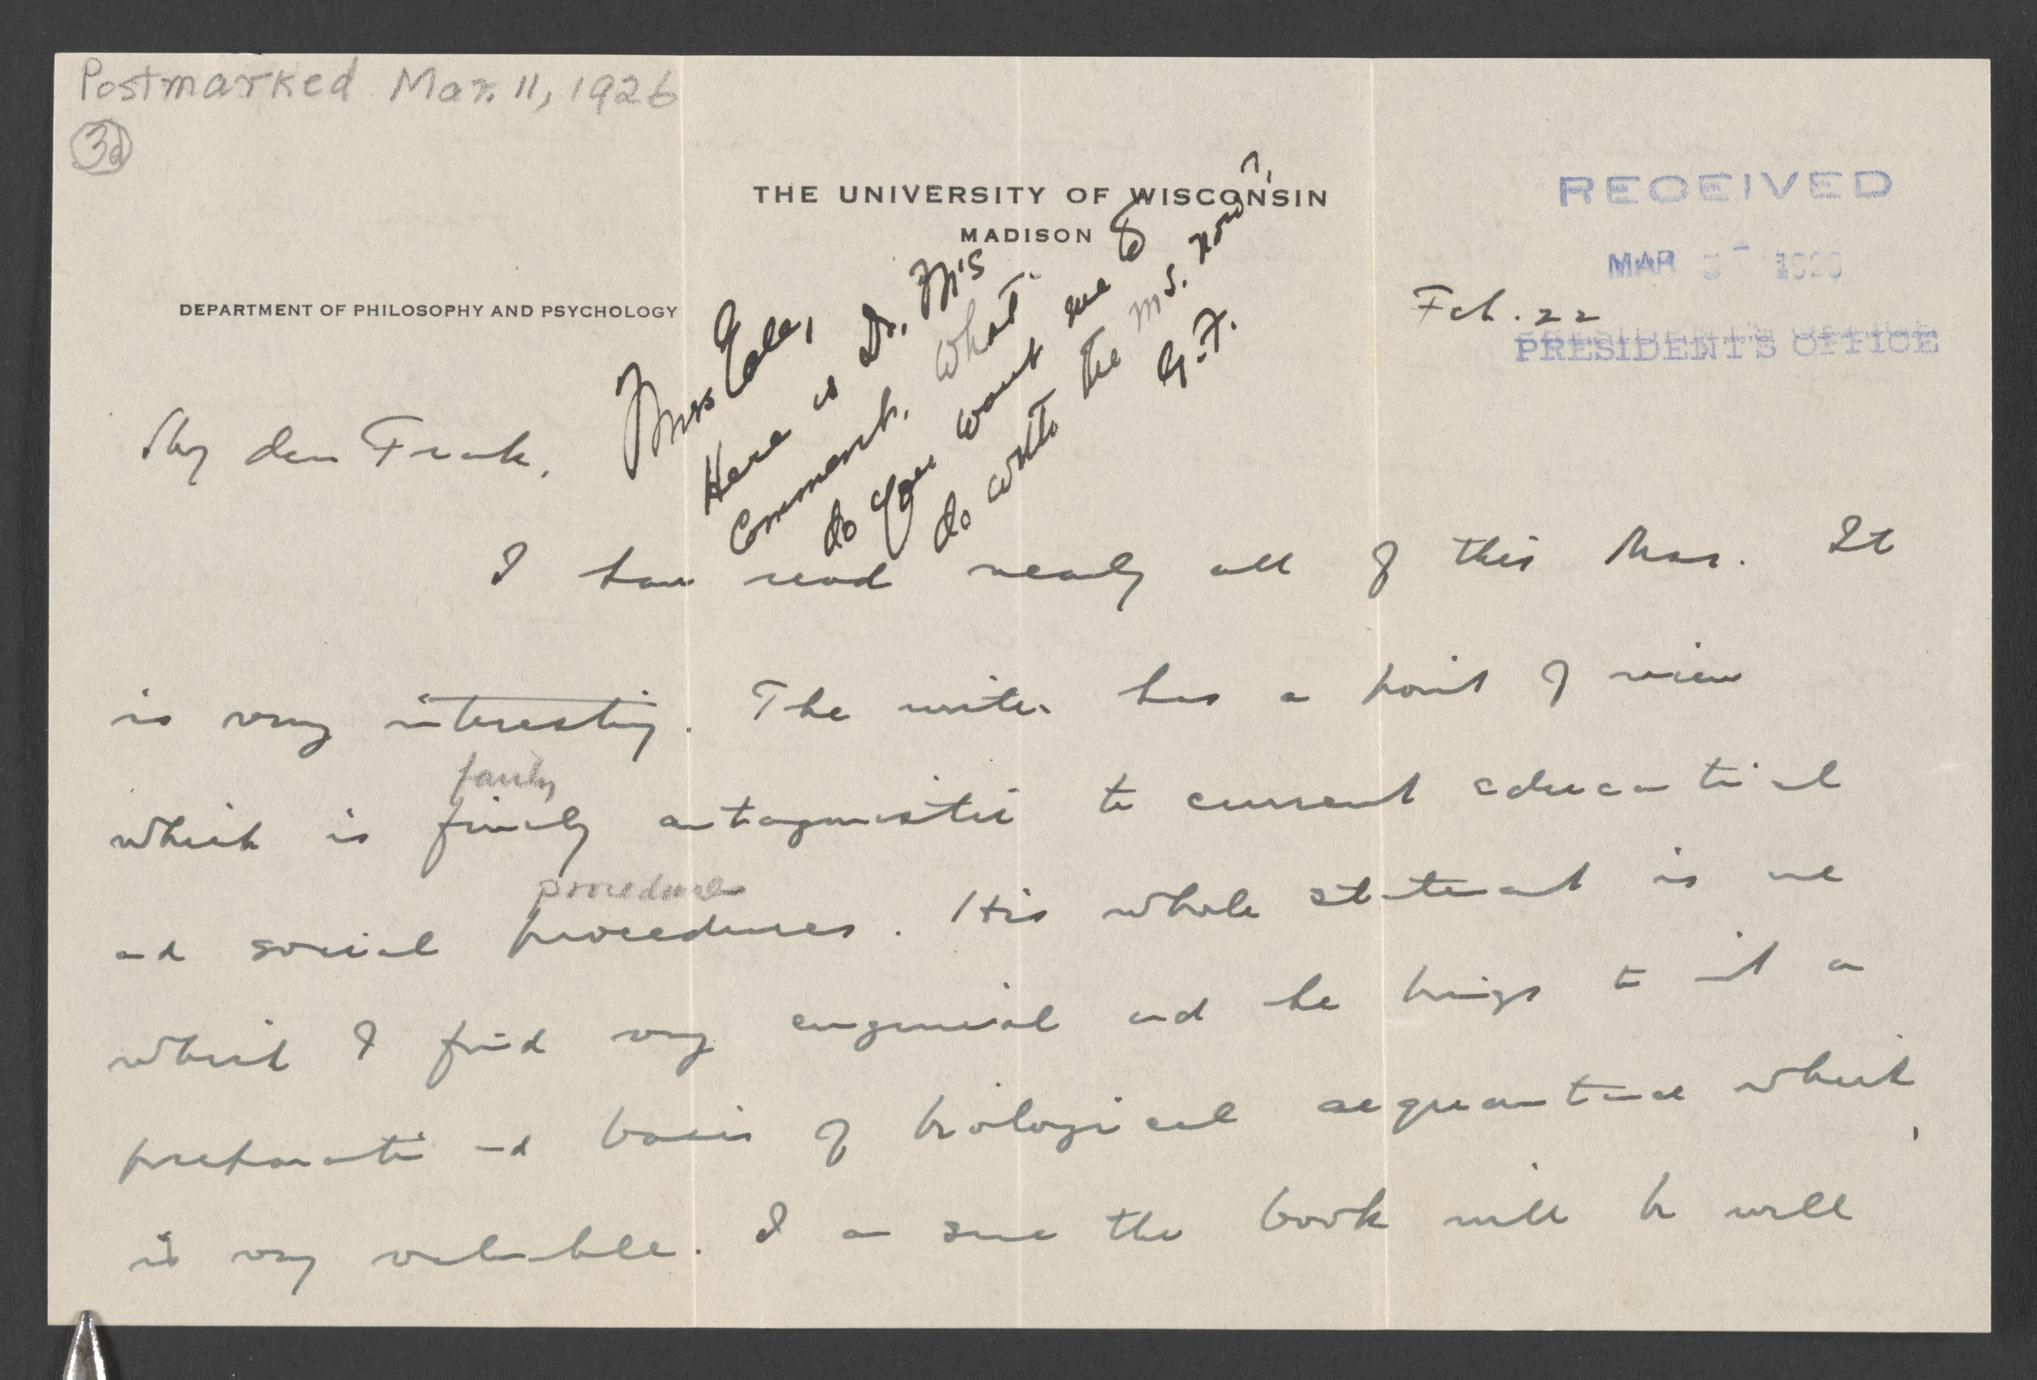 Postmarked Mar. 11, 1926
3d
THE UNIVERSITY OF WISCONSIN
MADISON
DEPARTMENT OF PHILOSOPHY AND PSYCHOLOGY
RECEIVED
MAR 1926
PRESIDENT'S OFFICE
Feb. 22
Here is Dr. M's
comment. What
do you want me to
do with the ms. now?
G.F.
My dear Frank,
I have read nearly all of this Mss. It
is very interesting. The writer has a point of view
fairly
which is firmly antagonistic to current educational
procedures
and social procedures. His whole statement is one
which I find very congenial and he brings to it a
preparation and basis of biological acquaintance which
is very valuable. I am sure the book will be well